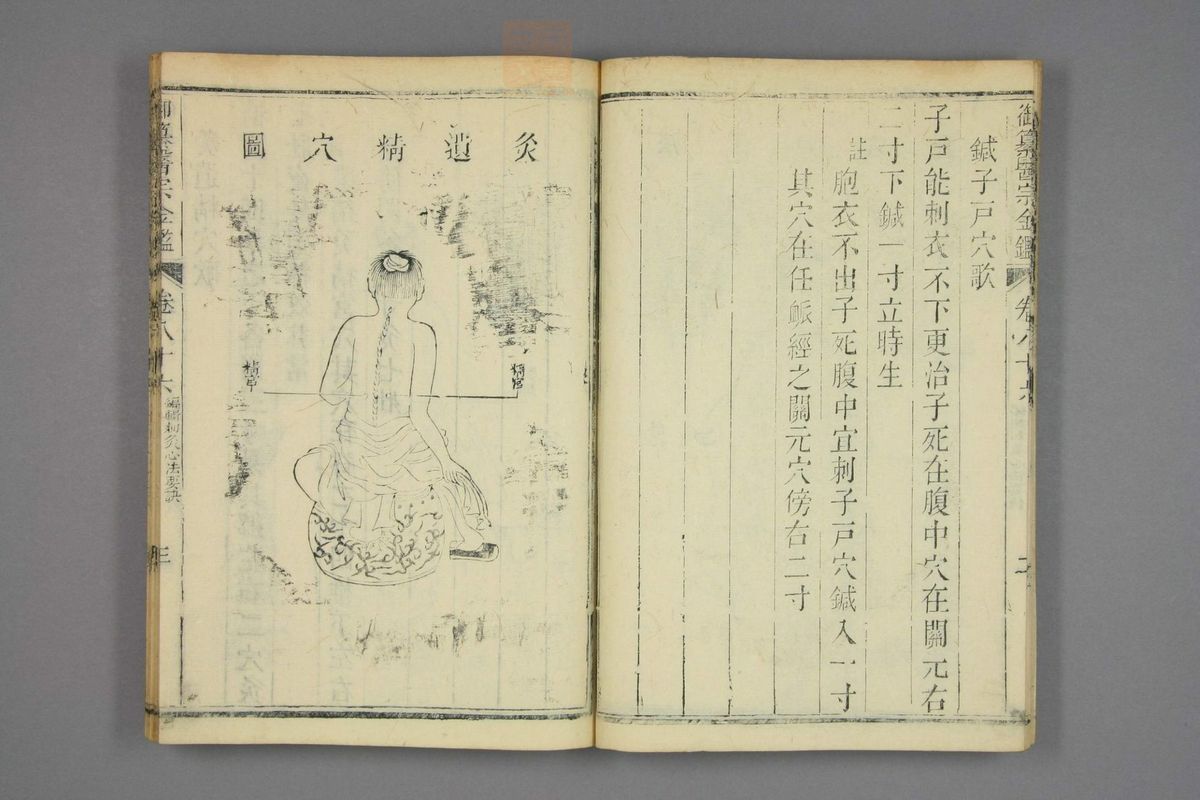 御纂醫宗金鑑
卷八十六
鍼子戸穴歌
子戸能刺衣不下更治子死在腹中穴在關元右
二寸下鍼一寸立時生
註
胞衣不出子死腹中宜刺子戸穴鍼入一寸
其穴在任脈經之關元穴傍右二寸
灸遺精穴圖
精宮
精宮
御纂醫宗金鑑
卷八十六
編輯刺灸心法要訣